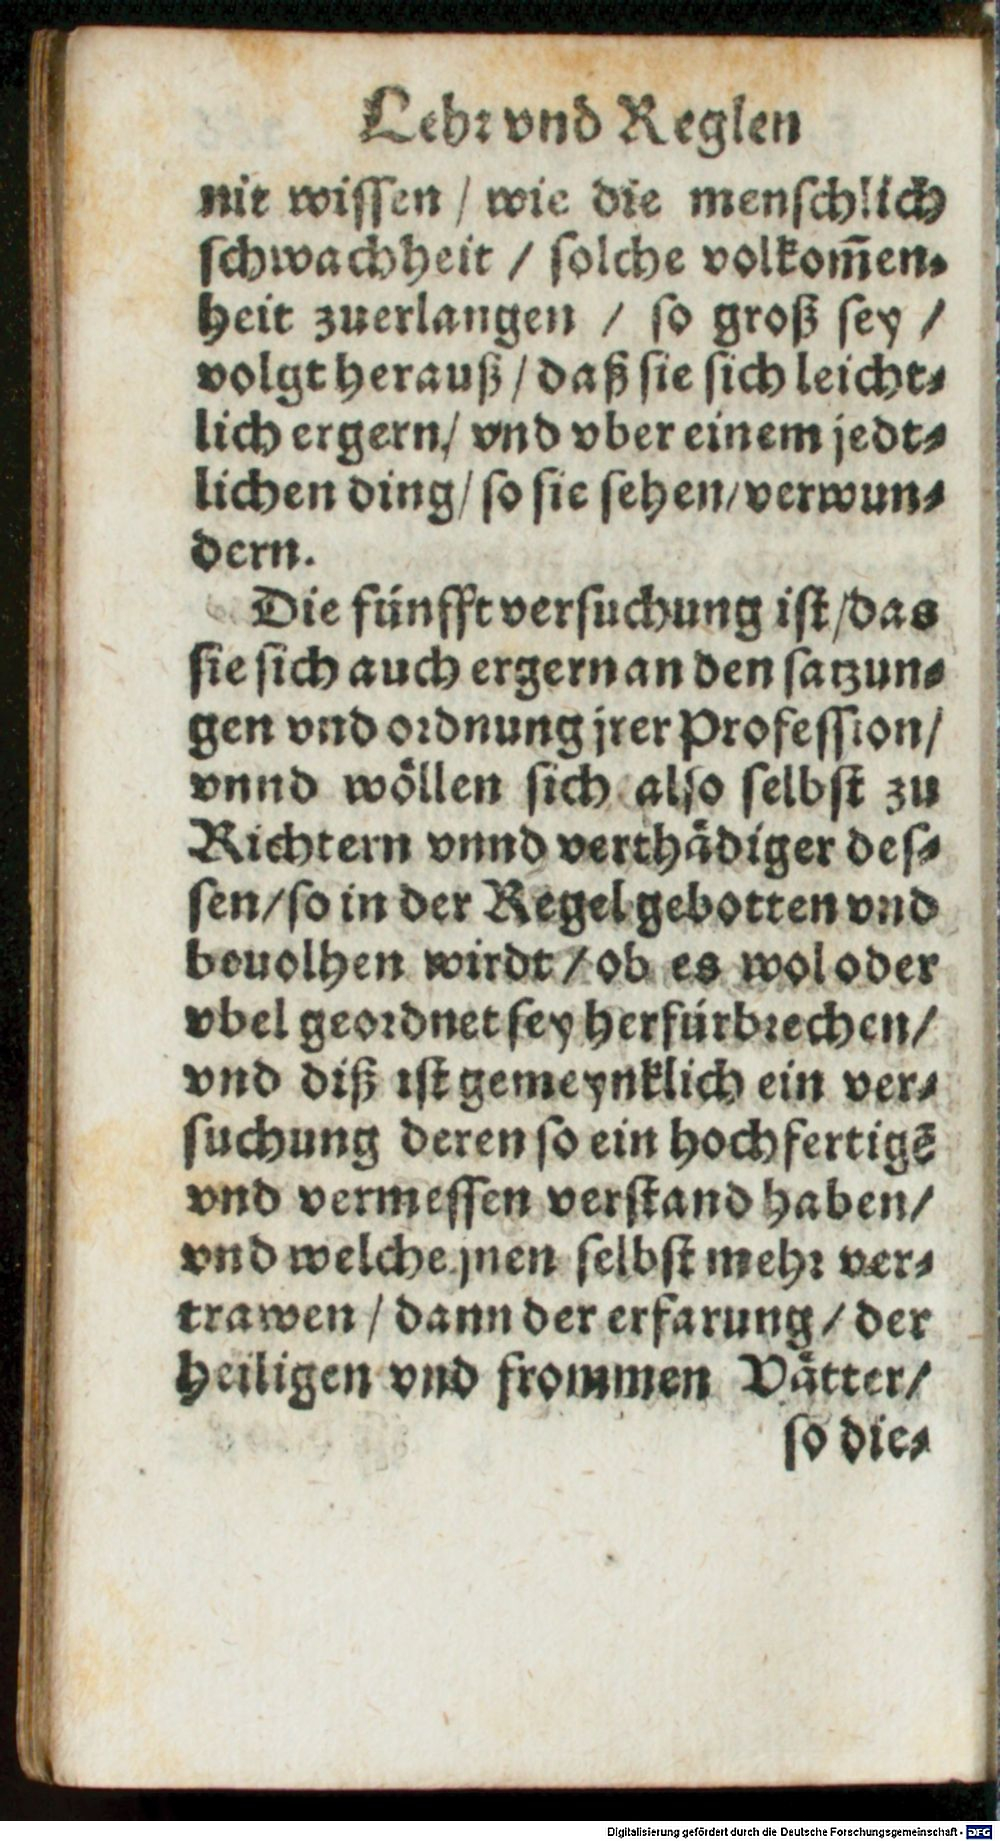 Lehr vnd Reglen
nit wissen / wie die menschlich
schwachheit / solche volkom̄en-
heit zuerlangen / so groß sey /
volgt herauß / daß sie sich leicht-
lich ergern / vnd vber einem jedt-
lichen ding / so sie sehen / verwun-
dern.
Die fünfft versuchung ist / das
sie sich auch ergern an den satzun-
gen vnd ordnung jrer Profession /
vnnd wöllen sich also selbst zu
Richtern vnnd verthädiger des-
sen / so in der Regel gebotten vnd
beuolhen wirdt / ob es wol oder
vbel geordnet sey herfürbrechen /
vnd diß ist gemeynklich ein ver-
suchung deren so ein hochfertigē
vnd vermessen verstand haben /
vnd welche jnen selbst mehr ver-
trawen / dann der erfarung / der
Heiligen vnd frommen Vätter /
so die-
Digitalisierung gefördert durch die Deutsche Forschungsgemeinschaft - DFG